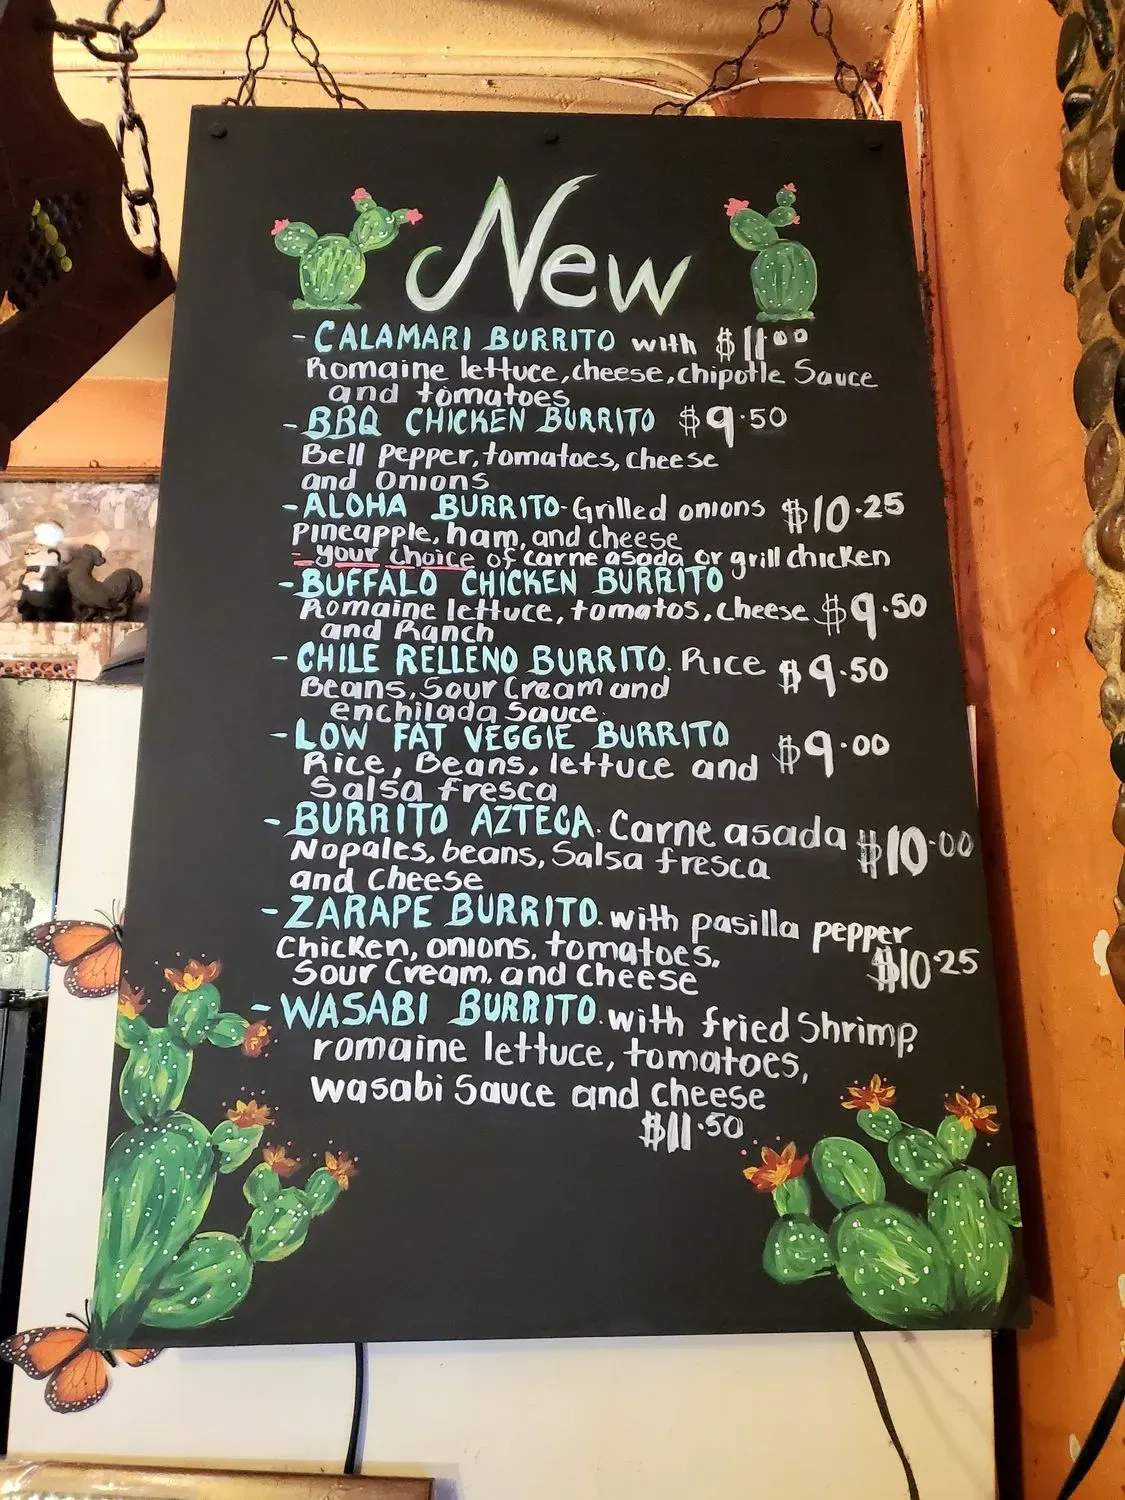 New
- CALAMARI BURRITO with $11.00
Romaine lettuce, cheese, chipotle Sauce
and tomatoes
- BBQ CHICKEN BURRITO $9.50
Bell Pepper, tomatoes, cheese
and Onions
- ALOHA BURRITO - Grilled onions $10.25
Pineapple, ham, and cheese
- your choice of carne asada or grill chicken
- BUFFALO CHICKEN BURRITO
Romaine lettuce, tomatos, cheese $9.50
and Ranch
- CHILE RELLENO BURRITO. Rice $9.50
Beans, Sour Cream and
enchilada Sauce.
- LOW FAT VEGGIE BURRITO
Rice, Beans, lettuce and $9.00
Salsa fresca
- BURRITO AZTECA. Carne asada $10.00
Nopales, beans, Salsa fresca
and Cheese
- ZARAPE BURRITO. with pasilla pepper
Chicken, onions, tomatoes, $10.25
Sour Cream, and Cheese
- WASABI BURRITO. with fried Shrimp,
romaine lettuce, tomatoes,
wasabi Sauce and cheese
$11.50